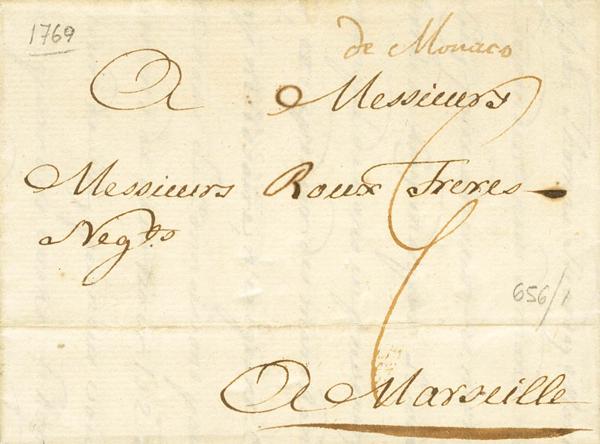 1769
de Monaco
A Messieurs
Messieurs Roux Freres
Neg.ts
656/1
A Marseille